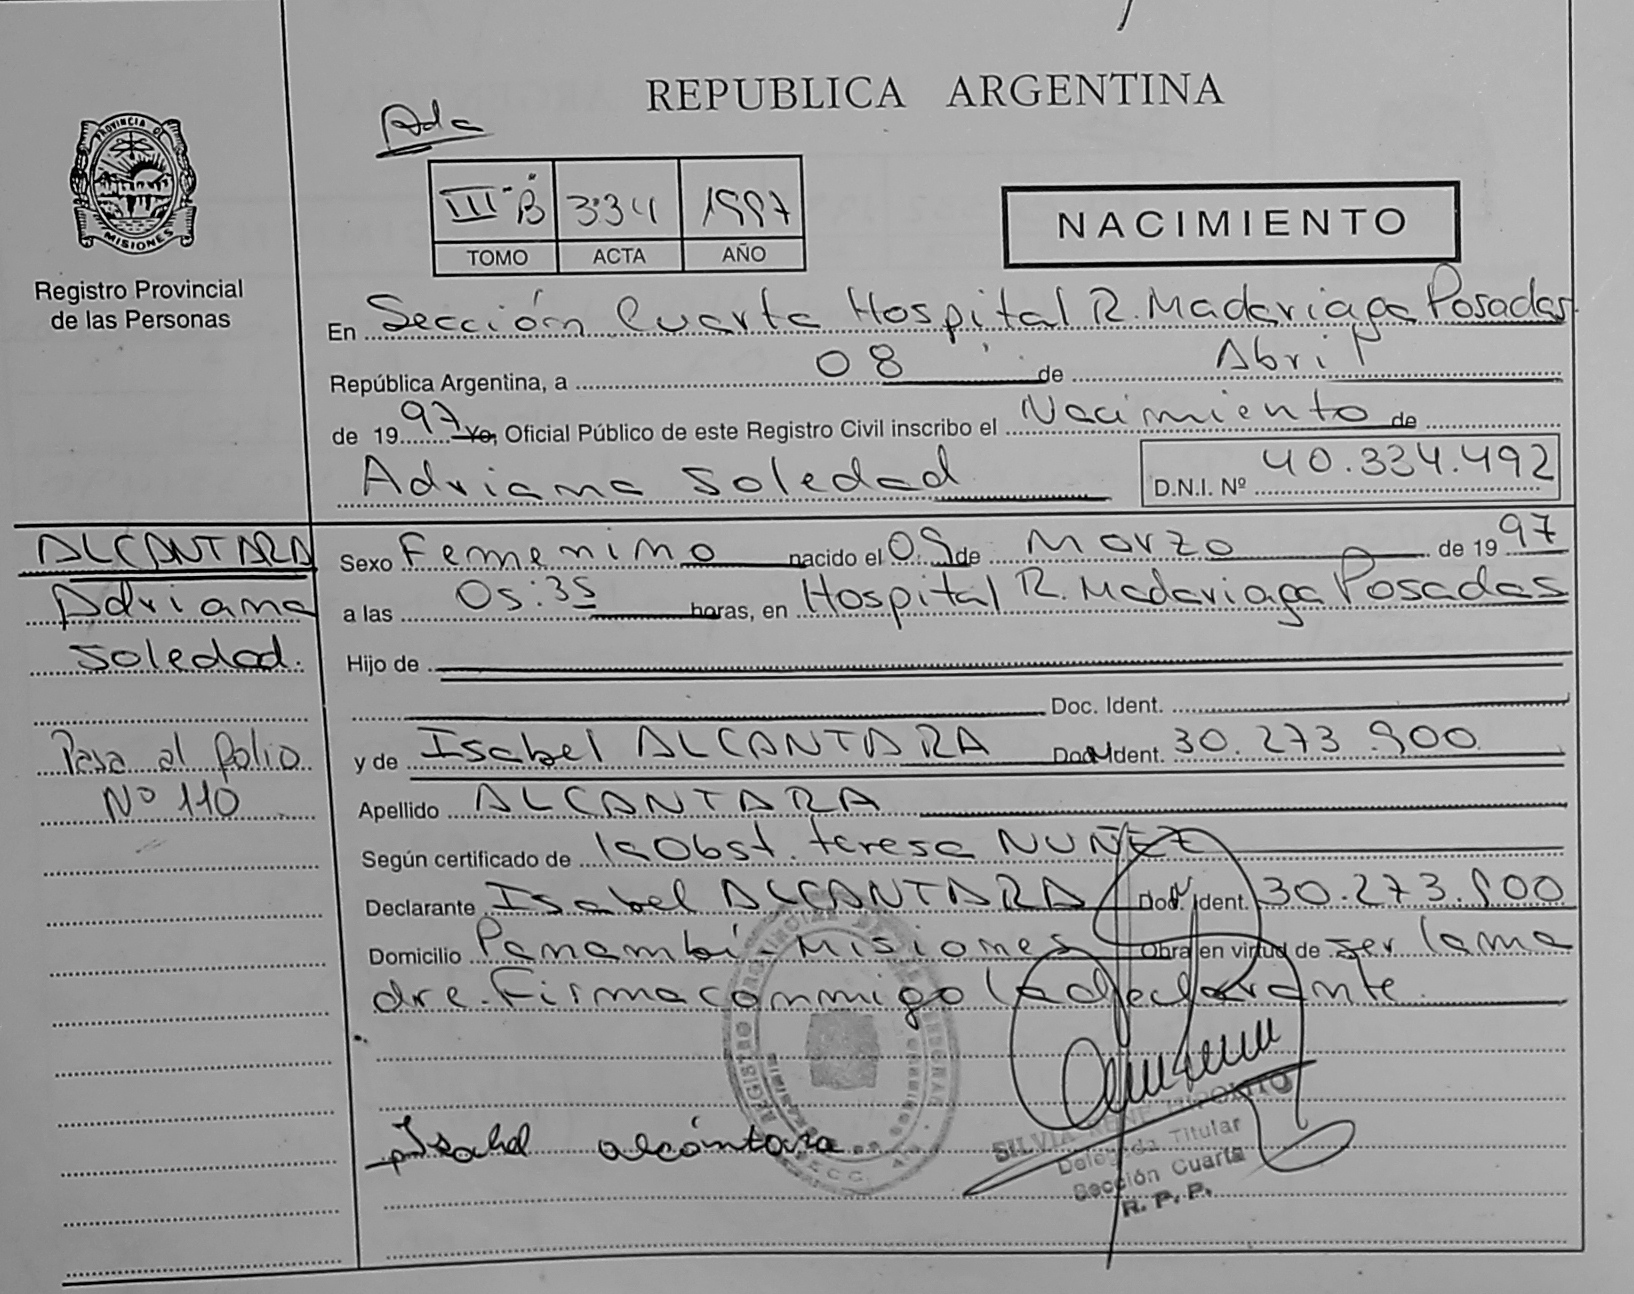 REPUBLICA ARGENTINA
PROVINCIA DE
MISIONES
Registro Provincial
de las Personas
III "B" 334 1997
TOMO ACTA AÑO
NACIMIENTO
En Sección Cuarta Hospital R. Madariaga Posadas
República Argentina, a 08 de Abril
de 1997 Yo, Oficial Público de este Registro Civil inscribo el Nacimiento de
Adriana Soledad D.N.I. Nº 40.334.492
ALCANTARA
Adriana
Soledad.
Pasa al folio
Nº 110
Sexo Femenino nacido el 09 de Marzo de 1997
a las 05:35 horas, en Hospital R. Madariaga Posadas
Hijo de
Doc. Ident.
y de Isabel ALCANTARA Doc. Ident. 30.273.900
Apellido ALCANTARA
Según certificado de la Obst. teresa NUÑEZ
Declarante Isabel ALCANTARA Doc. Ident. 30.273.900
Domicilio Panambí - Misiones Obra en virtud de ser la ma
dre. Firma conmigo la declarante
Isabel alcántara
SILVIA
Delegada Titular
Sección Cuarta
R. P. P.